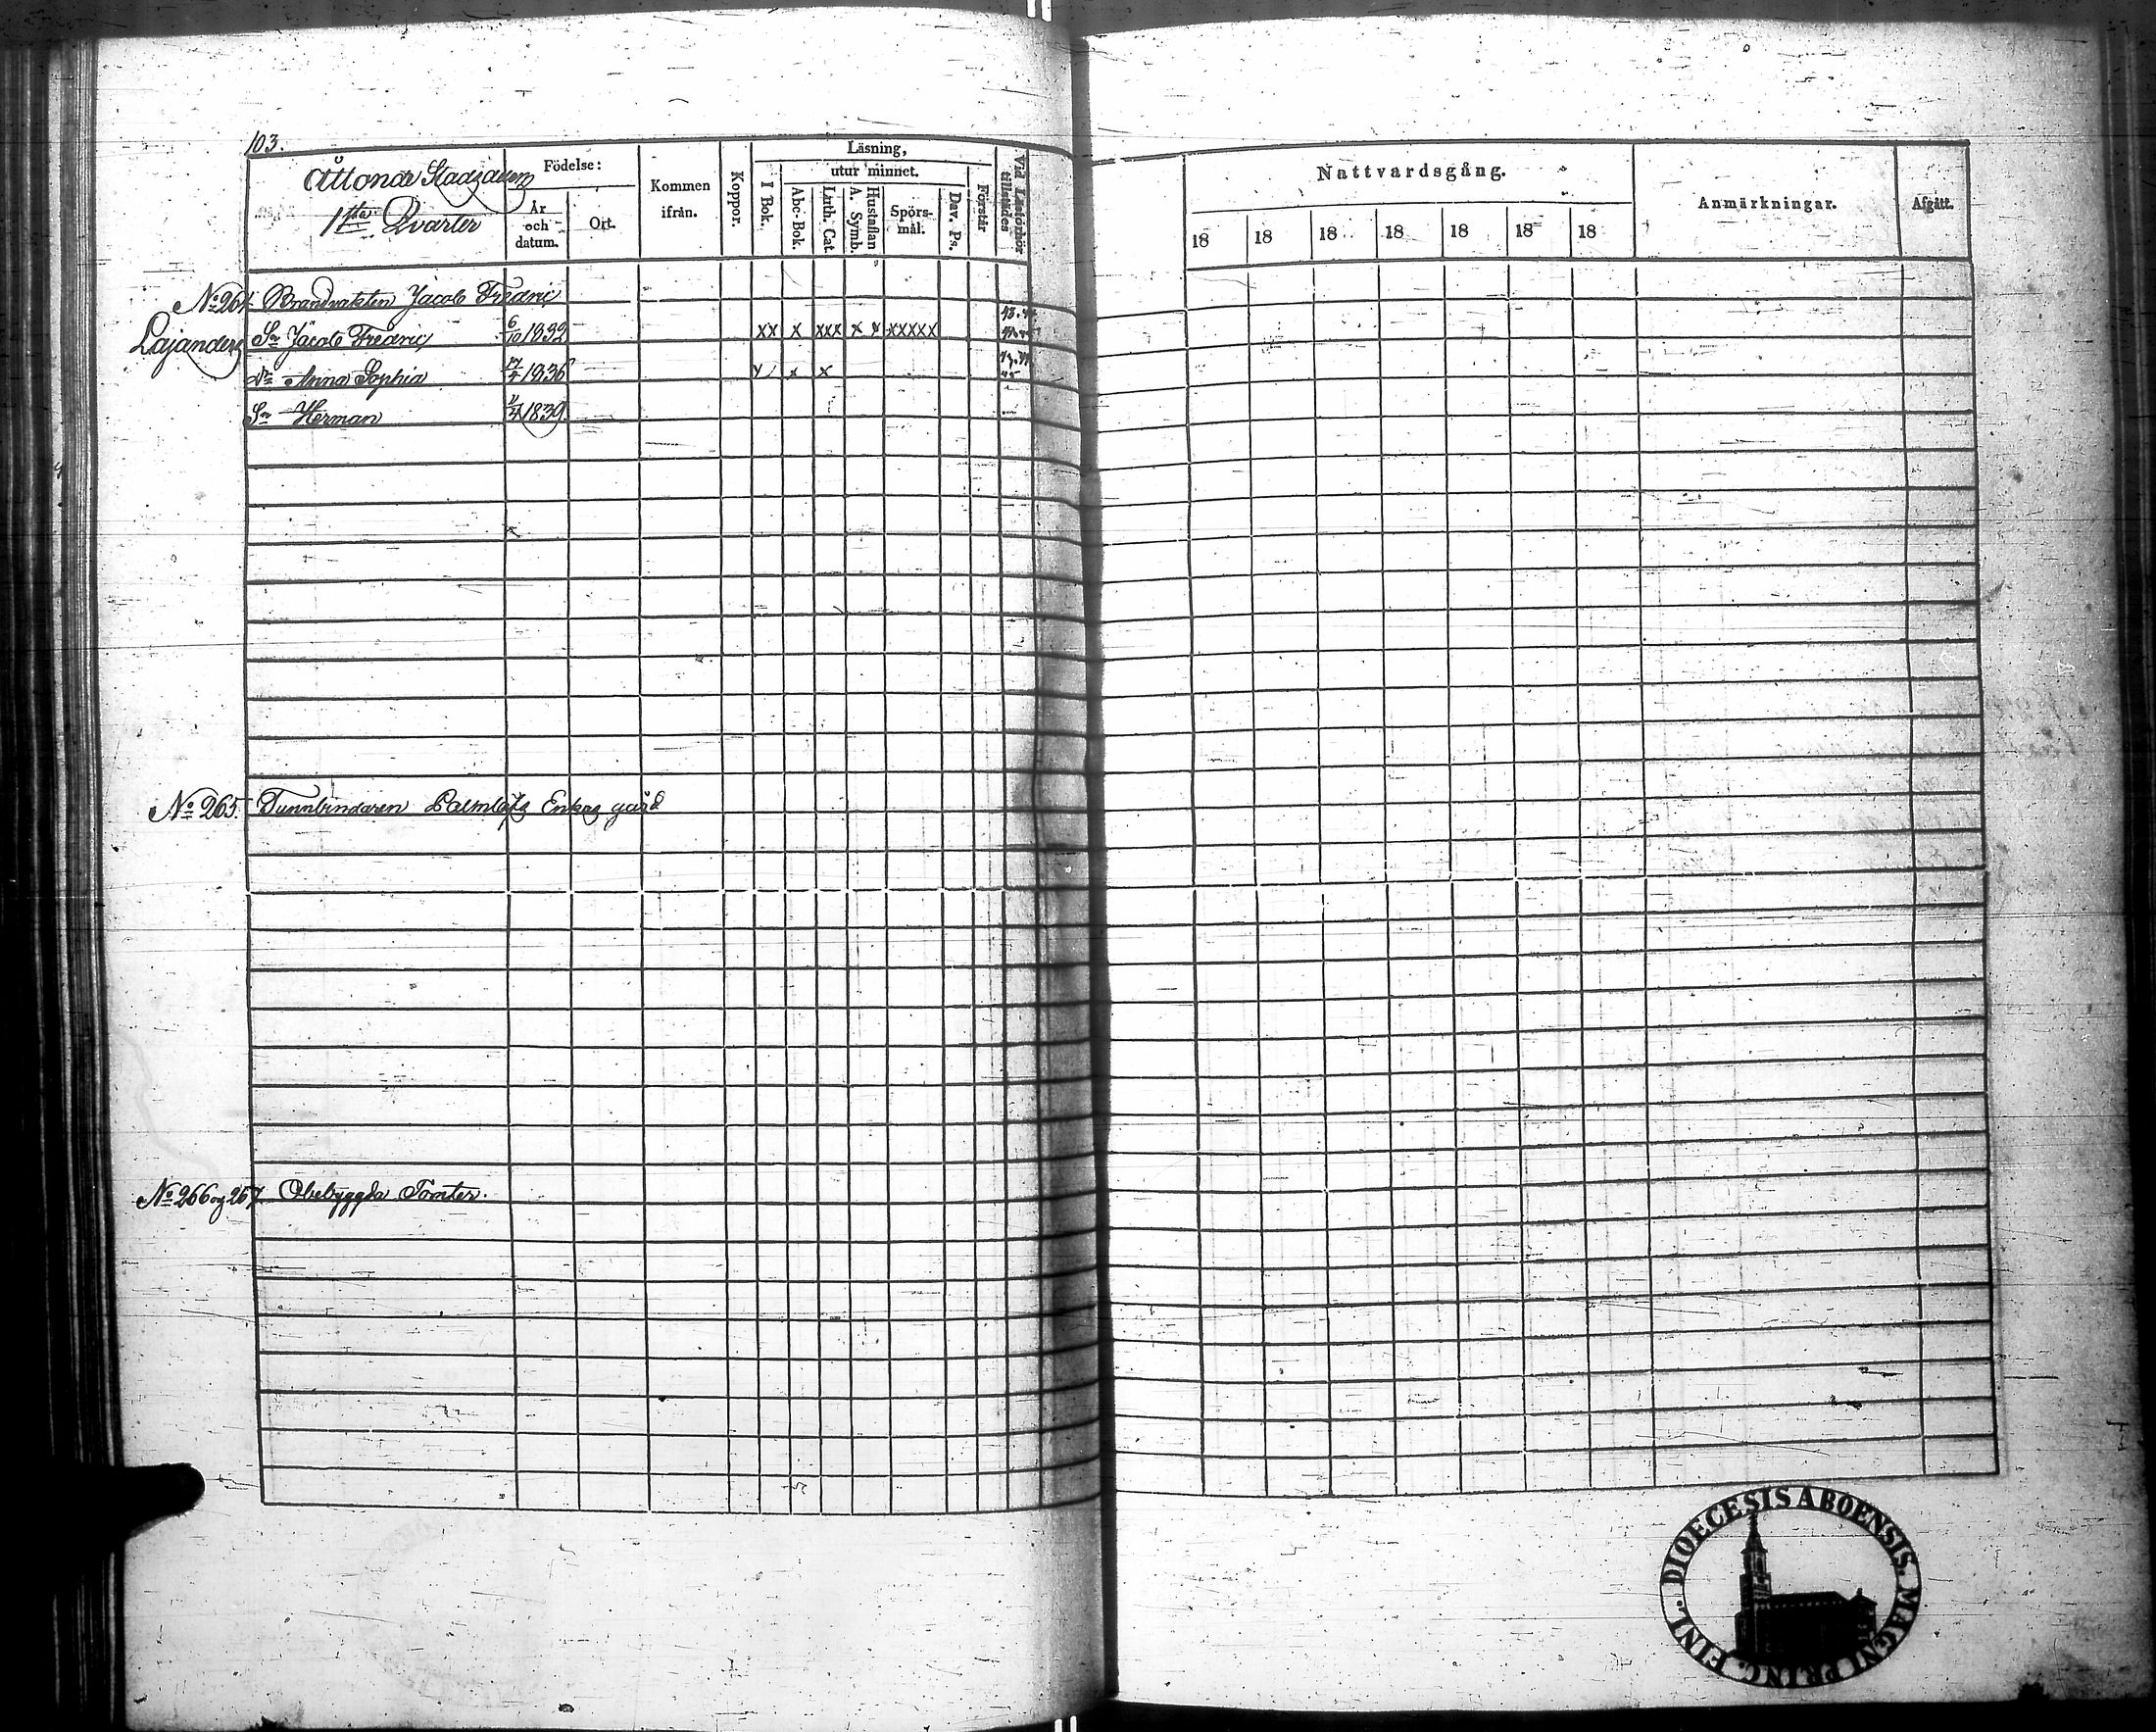 103.
Åttonde Stadsdelen
1sta Qvarter
Födelse:
År och datum.
Ort.
Kommen ifrån.
Koppor.
Läsning,
I Bok.
utur minnet.
Abc-Bok.
Luth. Cat.
A. Symb.
Hustaflan
Spörsmål.
Dav. Ps.
Förstår
Vid Läsförhör tillstädes
Nattvardsgång.
18 18 18 18 18 18 18
Anmärkningar.
Afgått.
No 264. Brandvakten Jacob Fredric
Lajanders
Sn Jacob Fredric 6/10 1832 xx x xxx x x xxxxx
Dr Anna Sophia 1836 x x
Sn Herman 1839.
No 265. Tunnbindaren Palmlöfs Enkas gård
No 266 og 267. Obebyggda Tomter.
DIOECESIS ABOENSIS. MAGNI PRINC. FINL.